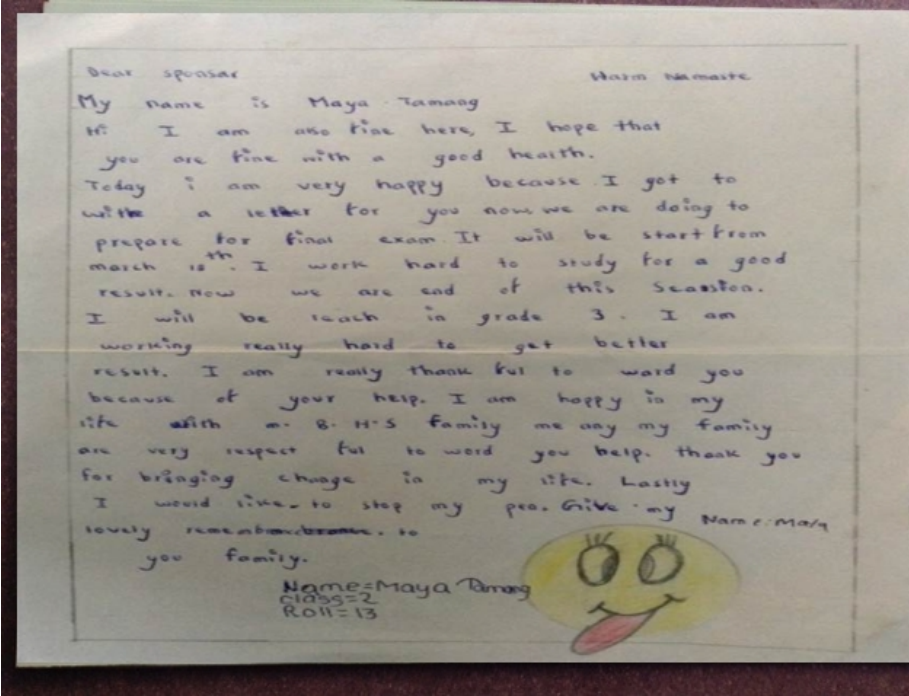 Dear sponsar Warm Namaste
My name is Maya Tamang
Hi I am also fine here, I hope that
you are fine with a good health.
Today i am very happy because I got to
write a letter for you now we are doing to
prepare for final exam. It will be start from
march th. I work hard to study for a good
result. Now we are end of this Seassion.
I will be reach in grade 3. I am
working really hard to get better
result. I am really thank ful to ward you
because of your help. I am happy in my
life with m. B. H. S family me any my family
are very respect ful to word you help. thank you
for bringing change in my life. Lastly
I would like to stop my pen. Give my
lovely to
you family.
Name: Maya
Name=Maya Tamang
class=2
Roll=13